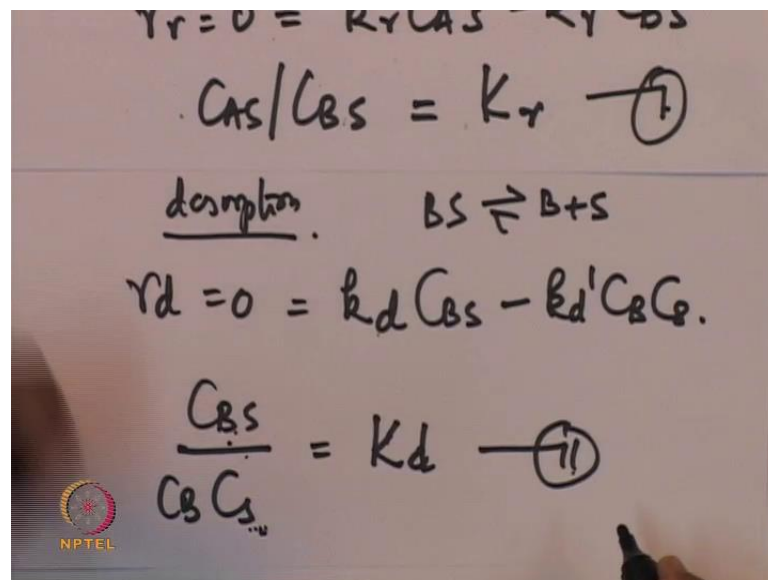 rr = 0 = krCAS - kr'CBS
CAS/CBS = Kr — I
desorption. BS ⇌ B+S
rd = 0 = kd CBS - kd' CB CS.
CBS
/ CB CS = Kd — II
NPTEL